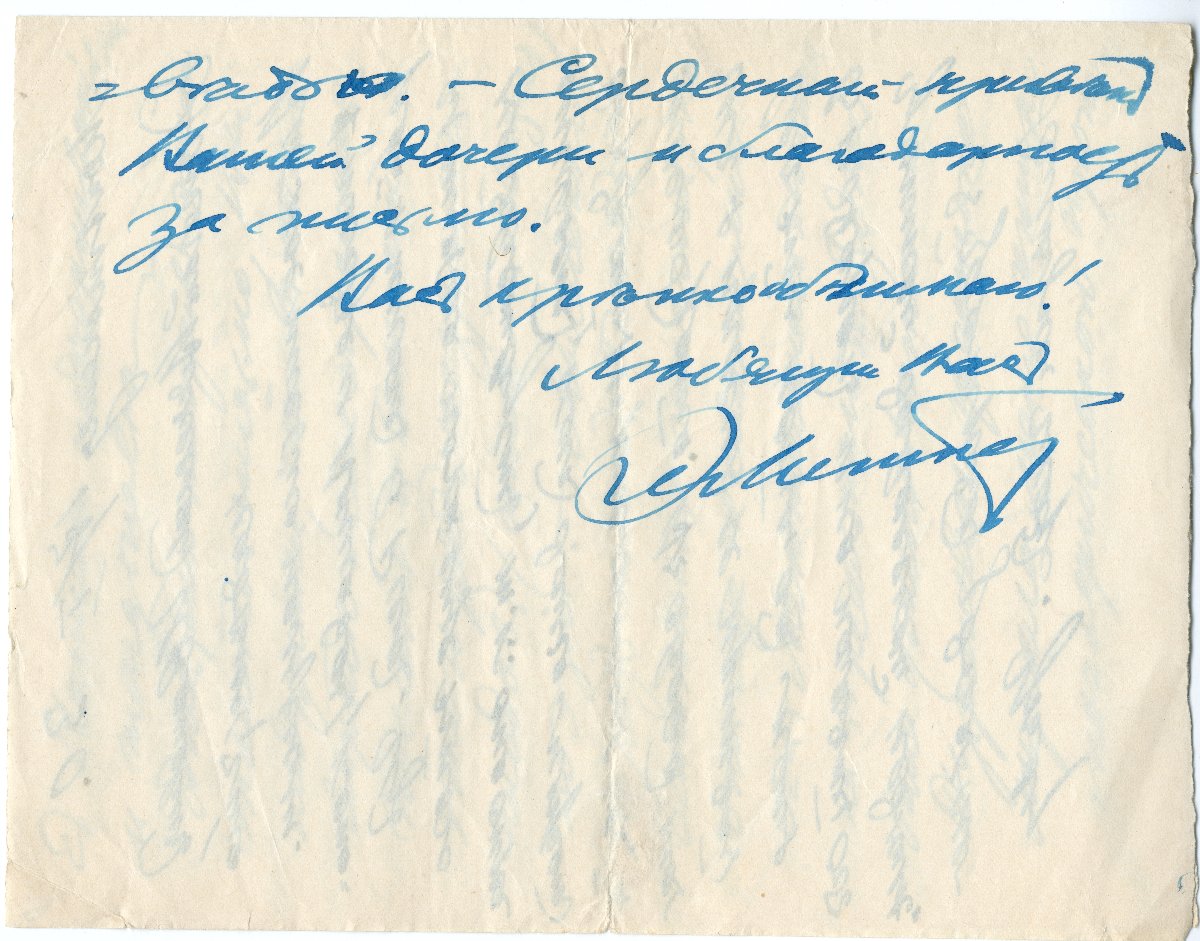 Сердечный привѣтъ
Вашей дочери и благодарность
за письмо.
Васъ крѣпко обнимаю!
Любящій Васъ